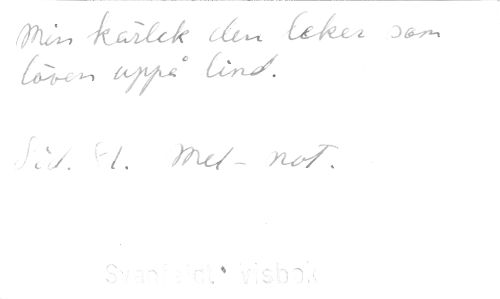 Min kärlek den leker som
löven uppå lind.
Sid. 81. Mel- not.
visbok